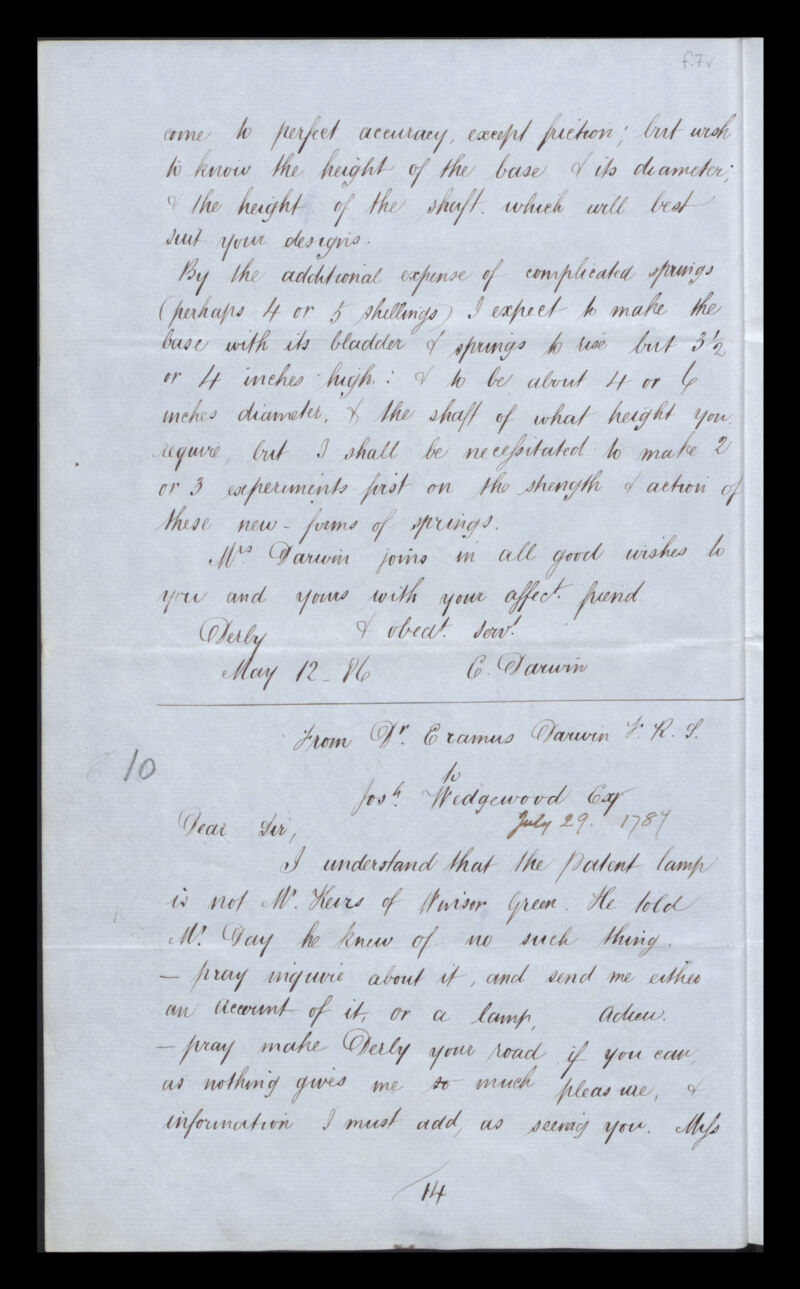 f.7v
come to perfect accuracy, except friction; but wish
to know the height of the base & its diameter;
& the height of the shaft. which will best
suit your designs.
By the additional expense of complicated springs
(perhaps 4 or 5 shillings) I expect to make the
base with its bladder & springs to rise but 3½
or 4 inches high: & to be about 4 or 6
inches diameter, & the shaft of what height you
require, but I shall be necessitated to make 2
or 3 experiments first on the strength & action of
these new-forms of springs.
Mrs Darwin joins in all good wishes to
you and yours with your affect. friend
Derby & obedt. servt.
May 12-86 E. Darwin
From Dr. Eramus Darwin F. R. S.
10
to
Josh. Wedgewood Esqr
July 29. 1787
Dear Sir,
I understand that the Patent lamp
is not Mr. Keirs of Winsor Green. He told
Mr. Day he knew of no such thing.
- pray inquire about it, and send me either
an account of it, or a lamp, Adieu.
- pray make Derby your road if you can,
as nothing gives me so much pleasure, &
information I must add, as seeing you. Miss
14